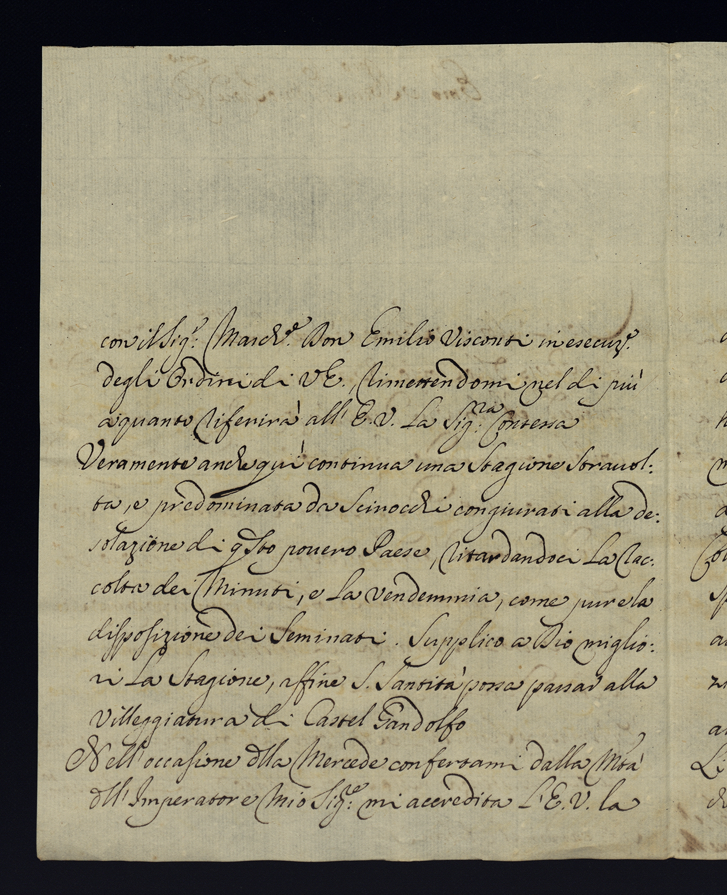 con il Sig.r March.e Don Emilio Visconti in esecuz.e
degli Ordini di V.E. rimettendomi nel di più
a quanto riferirà all' E.V. La Sig.ra Contessa
Veramente anche qui continua una Stagione stravol:
ta, e predominata da Scirocchi congiurati alla de:
solazione di q.sto povero Paese, ritardandoci La rac:
colta dei Minuti, e La Vendemmia, come pure la
disposizione dei Seminati. Supplico a Dio miglio:
ri La Stagione, affine S. Santità possa passar alla
Villeggiatura di Castel Gandolfo
Nell' occasione dlla Mercede conferami dalla Mtà
dll' Imperatore Mio Sig.re mi accredita L' E.V. la